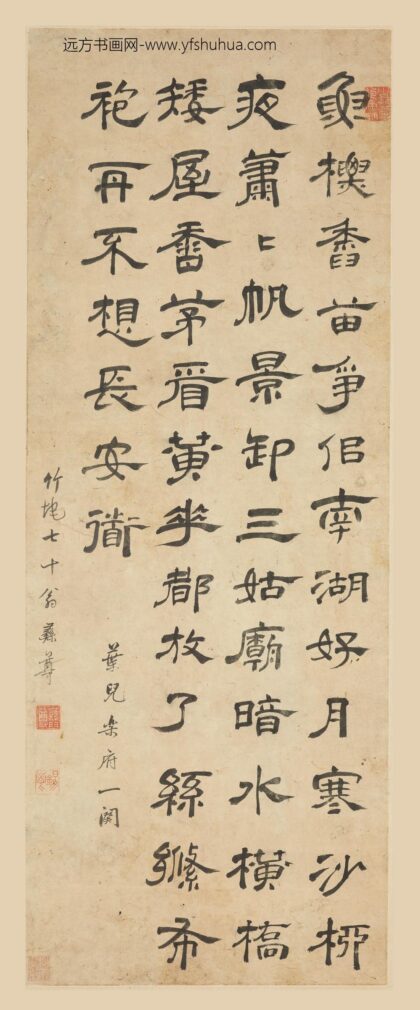 远方书画网-www.yfshuhua.com
魚樔香苗爭佀南湖好月寒沙柳
夜蕭〻帆景卸三姑廟暗水橫橋
矮屋香茅看黃華都放了絲縧布
袍再不想長安衜
葉兒樂府一闋
竹垞七十翁彝尊